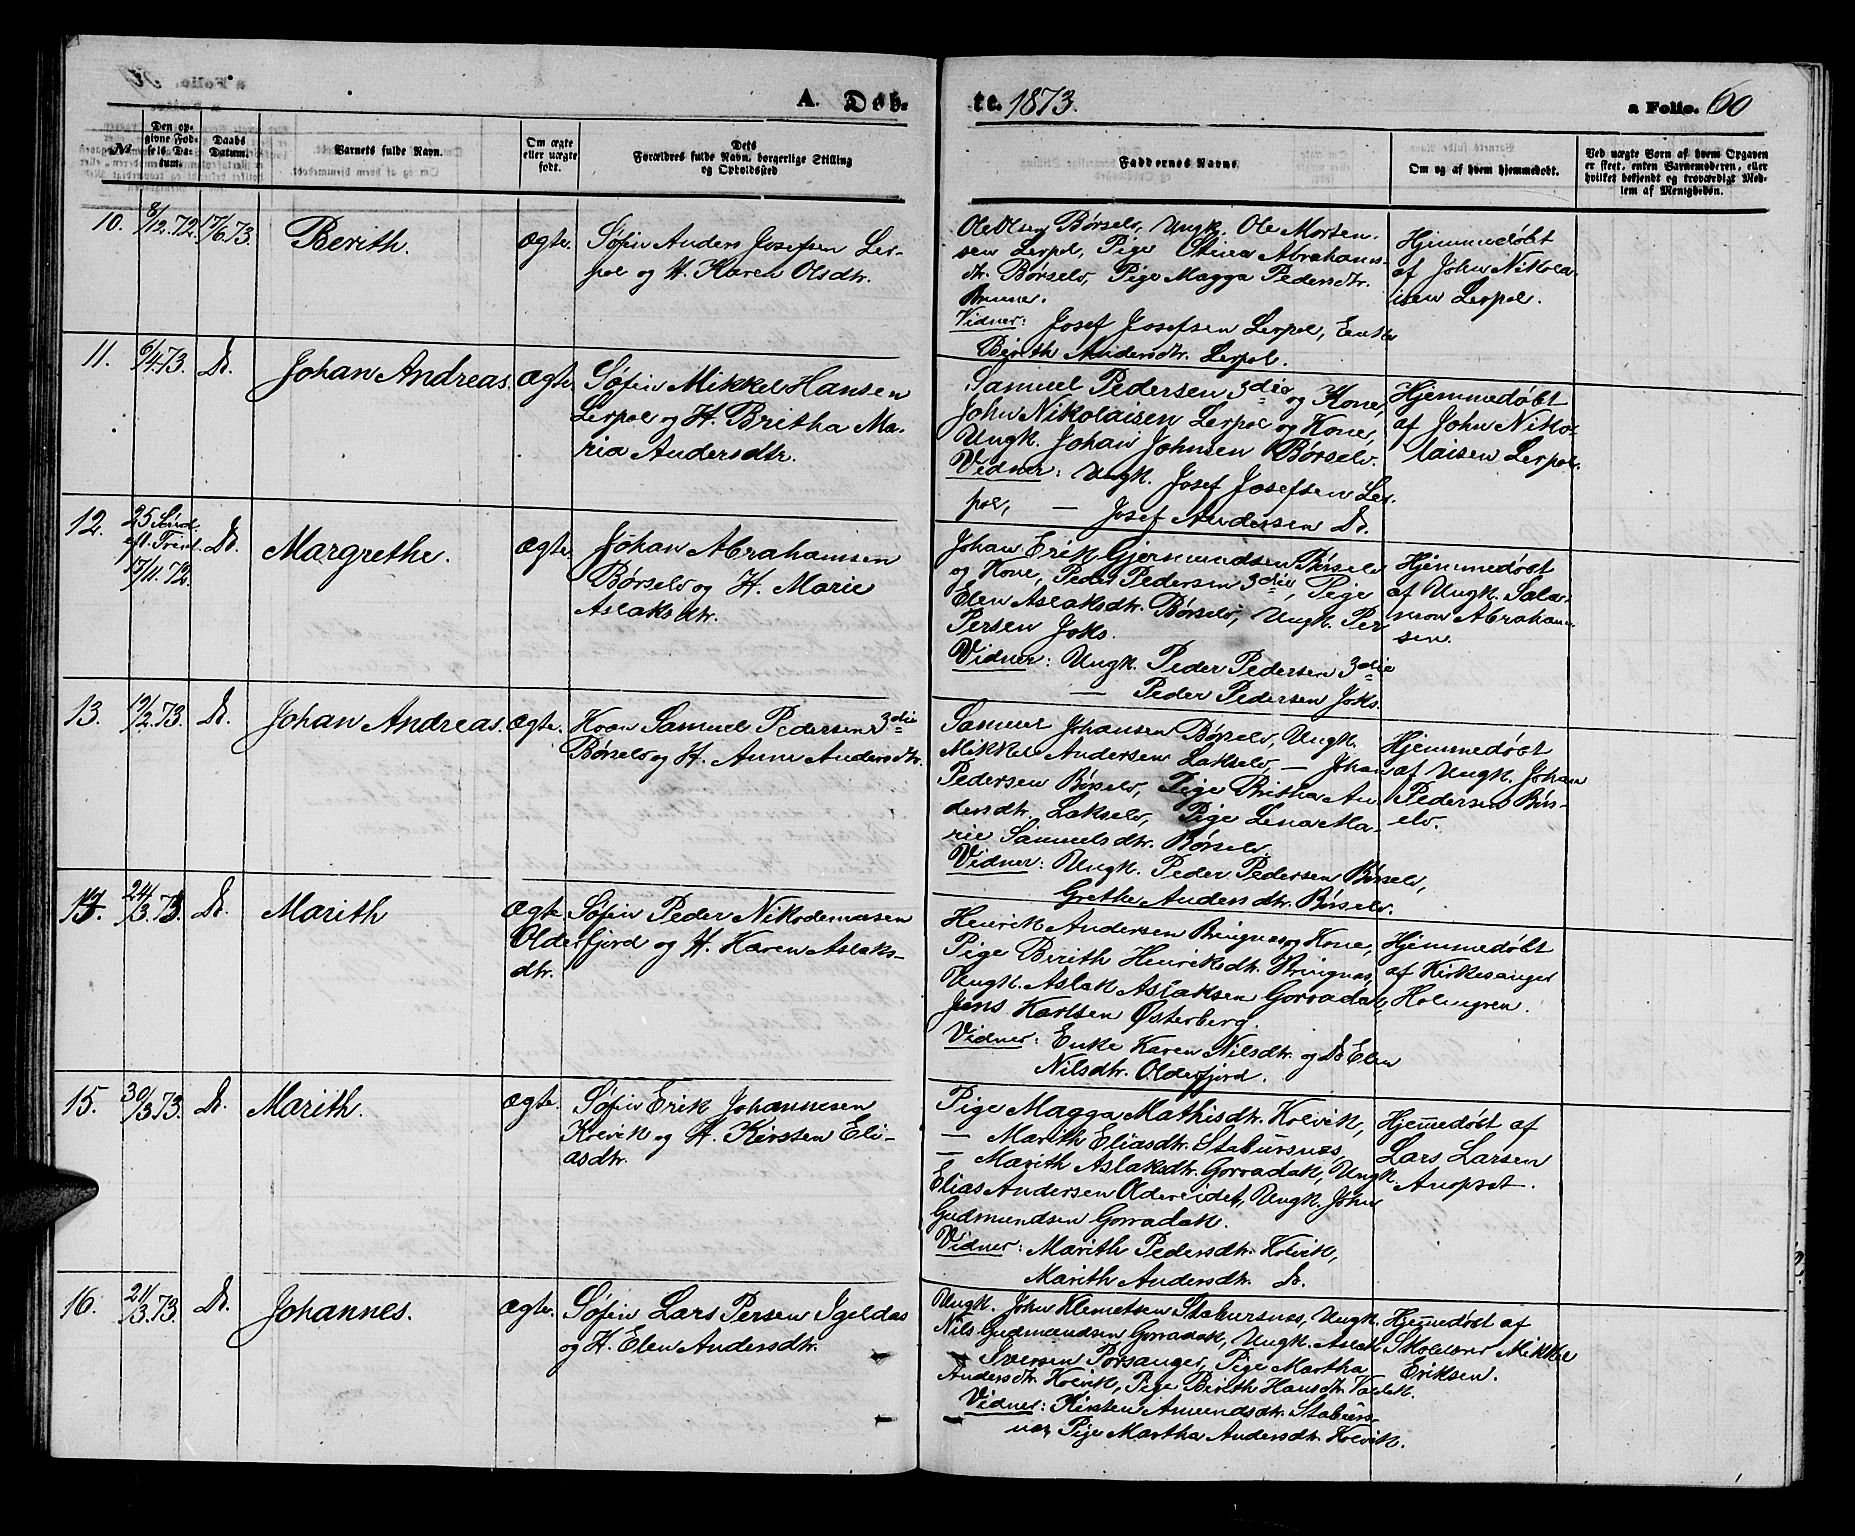 A. Døb-
te. 1873.
a Folio. 60
№
Den op-
givne Fød-
sels Da-
tum.
Daabs
Datum.
Barnets fulde Navn.
Om ægte
eller uægte
født.
Dets
Forældres fulde Navn, borgerlige Stilling
og Opholdssted
Faddernes Navne
Om og af hvem hjemmedøbt.
Ved uægte Børn af hvem Opgaven
er skeet, enten Barnemoderen, eller
hvilket bekjendt og troværdigt Med-
lem af Menigheden.
10.
8/12.72.
17/6.73.
Berith.
Ægte.
Søfin Anders Josefsen Ler-
pol og H. Karen Olsdtr.
Ole Olsen Børselv, Ungk. Ole Morten-
sen Lerpol, Pige Stina Abrahams-
dtr. Børselv, Pige Magga Pedersdtr.
Brenner.
Vidner: Josef Josefsen Lerpol, Enke
Birith Andersdtr. Lerpol.
Hjemmedøbt
af John Nikola-
isen Lerpol.
11.
6/4.73.
Do.
Johan Andreas.
Ægte.
Søfin Mikkel Hansen
Lerpol og H. Britha Ma-
ria Andersdtr.
Samuel Pedersen 3die og Kone,
John Nikolaisen Lerpol og Kone,
Ungk. Johan Johnsen Børselv.
Vidner: Ungk. Josef Josefsen Ler-
pol, — Josef Andersen Do.
Hjemmedøbt
af John Niko-
laisen Lerpol.
12.
25 Sønd.
eft. Trend.
17/11.72.
Do.
Margrethe.
Ægte.
Johan Abrahamsen
Børselv og H. Marie
Aslaksdtr.
Johan Erik Gjermundsen Børselv
og Kone, Peder Pedersen 3die, Pige
Elen Aslaksdtr. Børselv, Ungk. Per
Persen Joks.
Vidner: Ungk. Peder Pedersen 3die
— Peder Pedersen Joks.
Hjemmedøbt
af Ungk. Salo-
mon Abraham-
sen.
13.
12/2.73.
Do.
Johan Andreas.
Ægte.
Kvæn Samuel Pedersen 3die
Børselv og H. Anne Andersdtr.
Samuel Johansen Børselv, Ungk.
Mikkel Andersen Lakselv, — Johan
Pedersen Børselv, Pige Britha An-
dersdtr. Lakselv, Pige Lena Ma-
rie Samuelsdtr. Børselv.
Vidner: Ungk. Peder Pedersen Børselv,
Grethe Andersdtr. Børselv.
Hjemmedøbt
af Ungk. Johan
Pedersen Børs-
elv.
14.
24/3.73.
Do.
Marith
Ægte.
Søfin Peder Nikodemusen
Olderfjord og H. Karen Aslaks-
dtr.
Henrik Andersen Bringnes og Kone,
Pige Birith Henriksdtr. Bringnes,
Ungk. Aslak Aslaksen Gorradak,
Jens Karlsen Østerberg.
Vidner: Enke Karen Nilsdtr. og Do Elen
Nilsdtr. Olderfjord.
Hjemmedøbt
af Kirkesanger
Holmgren.
15.
30/3.73.
Do.
Marith.
Ægte.
Søfin Erik Johannesen
Kolvik og H. Kirsten Eli-
asdtr.
Pige Magga Mathisdtr. Kolvik,
— Marith Eliasdtr. Stabursnæs,
— Marith Aslaksdtr. Gorradak, Ungk.
Elias Andersen Oldereidet, Ungk. John
Gudmundsen Gorradak.
Vidner: Marith Pedersdtr. Kolvik,
Marith Andersdtr. Do.
Hjemmedøbt af
Lars Larsen
Anopset.
16.
21/3.73.
Do.
Johannes.
Ægte.
Søfin Lars Persen Igeldas
og H. Elen Andersdtr.
Ungk. John Klemetsen Stabursnæs, Ungk.
Nils Gudmundsen Gorradak, Ungk. Aslak
Iversen Porsanger, Pige Martha
Andersdtr. Kolvik, Pige Birith Hansdtr.
Vidner: Kirsten Amundsdtr. Staburs-
næs, Pige Martha Andersdtr. Kolvik.
Hjemmedøbt af
Skolelærer Mikkel
Eriksen.